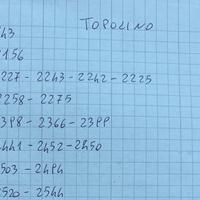 TOPOLINO
43
156
227 - 2243 - 2242 - 2225
2258 - 2275
2398 - 2366 - 2399
2441 - 2452 - 2450
503 - 2494
2520 - 2544